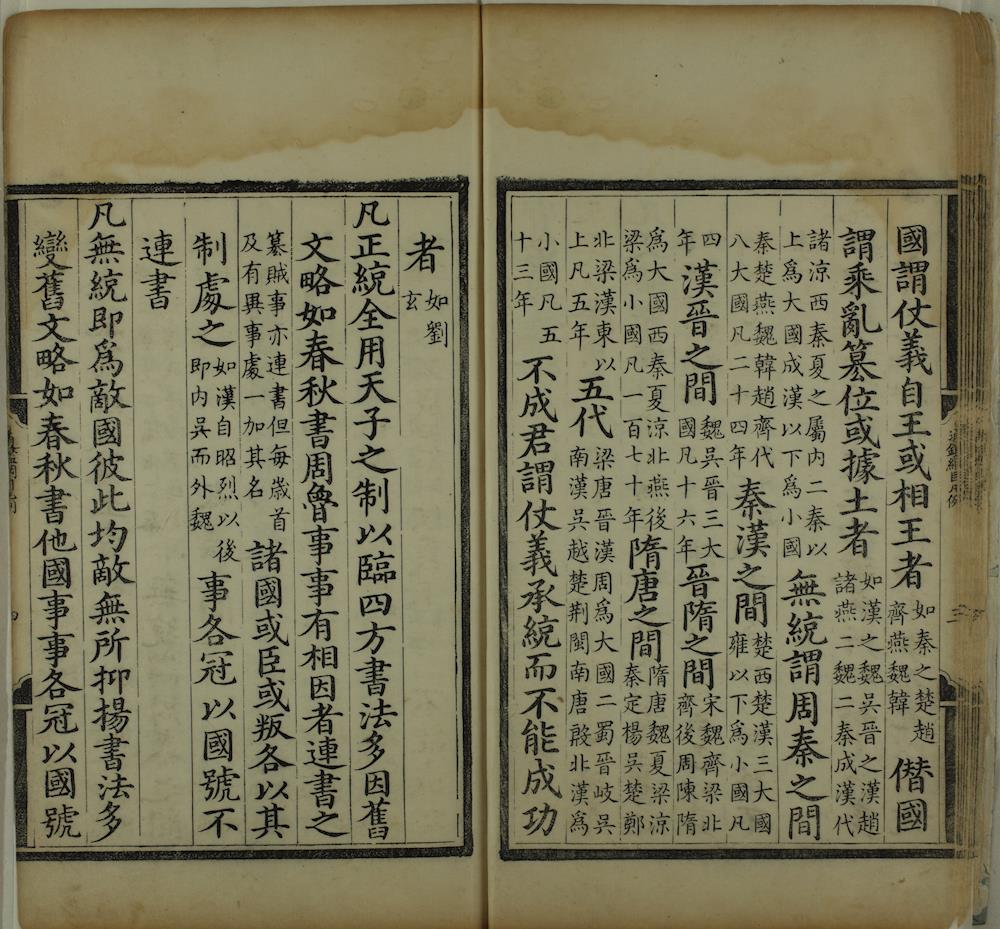 國謂仗義自王或相王者如秦之楚趙齊燕魏韓僭國
謂乘亂簒位或據土者如漢之魏吳晉之漢趙諸燕二魏二秦成漢代
諸涼西秦夏之屬内二秦以上爲大國成漢以下爲小國無統謂周秦之間
秦楚燕魏韓趙齊代八大國凡二十四年秦漢之間楚西楚漢三大國雍以下爲小國凡
四年漢晉之間魏吳晉三大國凡十六年晉隋之間宋魏齊梁北齊後周陳隋
爲大國西秦夏涼北燕後梁爲小國凡一百七十年隋唐之間隋唐魏夏梁涼秦定楊吳楚鄭
北梁漢東以上凡五年五代梁唐晉漢周爲大國二蜀晉岐吳南漢吳越楚荆閩南唐殷北漢爲
小國凡五十三年不成君謂仗義承統而不能成功
者如劉玄
凡正統全用天子之制以臨四方書法多因舊
文略如春秋書周魯事事有相因者連書之
簒賊事亦連書但每歲首及有異事處一加其名諸國或臣或叛各以其
制處之如漢自昭烈以後即内吳而外魏事各冠以國號不
連書
凡無統即爲敵國彼此均敵無所抑揚書法多
變舊文略如春秋書他國事事各冠以國號